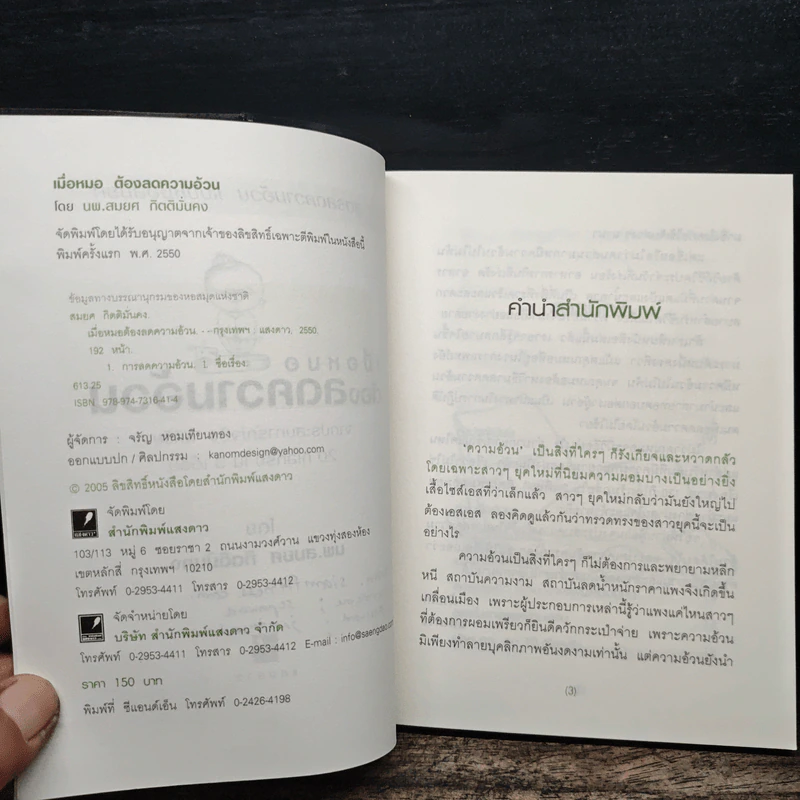 เมื่อหมอ ต้องลดความอ้วน
โดย นพ.สมยศ กิตติมั่นคง
จัดพิมพ์โดยได้รับอนุญาตจากเจ้าของลิขสิทธิ์เฉพาะตีพิมพ์ในหนังสือนี้
พิมพ์ครั้งแรก พ.ศ. 2550
ข้อมูลทางบรรณานุกรมของหอสมุดแห่งชาติ
สมยศ กิตติมั่นคง.
เมื่อหมอต้องลดความอ้วน. --กรุงเทพฯ : แสงดาว, 2550.
192 หน้า.
1. การลดความอ้วน. I. ชื่อเรื่อง.
613.25
ISBN 978-974-7316-41-4
ผู้จัดการ : จรัญ หอมเทียนทอง
ออกแบบปก / ศิลปกรรม : kanomdesign@yahoo.com
© 2005 ลิขสิทธิ์หนังสือโดยสำนักพิมพ์แสงดาว
จัดพิมพ์โดย
สำนักพิมพ์แสงดาว
103/113 หมู่ 6 ซอยราชา 2 ถนนงามวงศ์วาน แขวงทุ่งสองห้อง
เขตหลักสี่ กรุงเทพฯ 10210
โทรศัพท์ 0-2953-4411 โทรสาร 0-2953-4412
จัดจำหน่ายโดย
บริษัท สำนักพิมพ์แสงดาว จำกัด
โทรศัพท์ 0-2953-4411 โทรสาร 0-2953-4412 E-mail : info@saengdao.com
ราคา 150 บาท
พิมพ์ที่ ซีแอนด์เอ็น โทรศัพท์ 0-2426-4198
คำนำสำนักพิมพ์
'ความอ้วน' เป็นสิ่งที่ใครๆ ก็รังเกียจและหวาดกลัว
โดยเฉพาะสาวๆ ยุคใหม่ที่นิยมความผอมบางเป็นอย่างยิ่ง
เสื้อไซส์เอสที่ว่าเล็กแล้ว สาวๆ ยุคใหม่กลับว่ามันยังใหญ่ไป
ต้องเอสเอส ลองคิดดูแล้วกันว่าทรวดทรงของสาวยุคนี้จะเป็น
อย่างไร
ความอ้วนเป็นสิ่งที่ใครๆ ก็ไม่ต้องการและพยายามหลีก
หนี สถาบันความงาม สถาบันลดน้ำหนักราคาแพงจึงเกิดขึ้น
เกลื่อนเมือง เพราะผู้ประกอบการเหล่านี้รู้ว่าแพงแค่ไหนสาวๆ
ที่ต้องการผอมเพรียวก็ยินดีควักกระเป๋าจ่าย เพราะความอ้วน
มิเพียงทำลายบุคลิกภาพอันงดงามเท่านั้น แต่ความอ้วนยังนำ
(3)